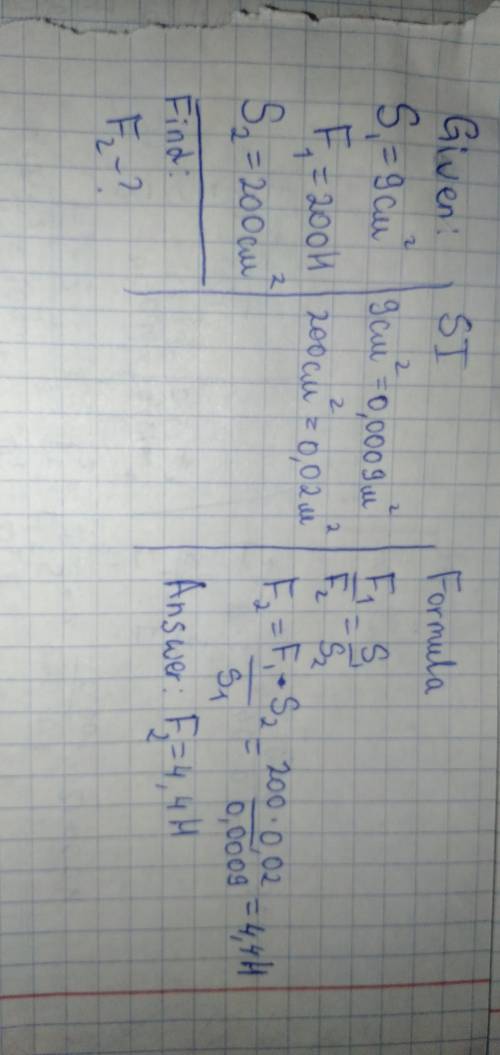 Given:
S₁ = 9см²
F₁ = 200Н
S₂ = 200см²
Find:
F₂ - ?
SI
9см² = 0,0009м²
200см² = 0,02м²
Formula
F₁/F₂ = S/S₂
F₂ = F₁•S₂/S₁ = 200·0,02/0,0009 = 4,4Н
Answer: F₂=4,4Н